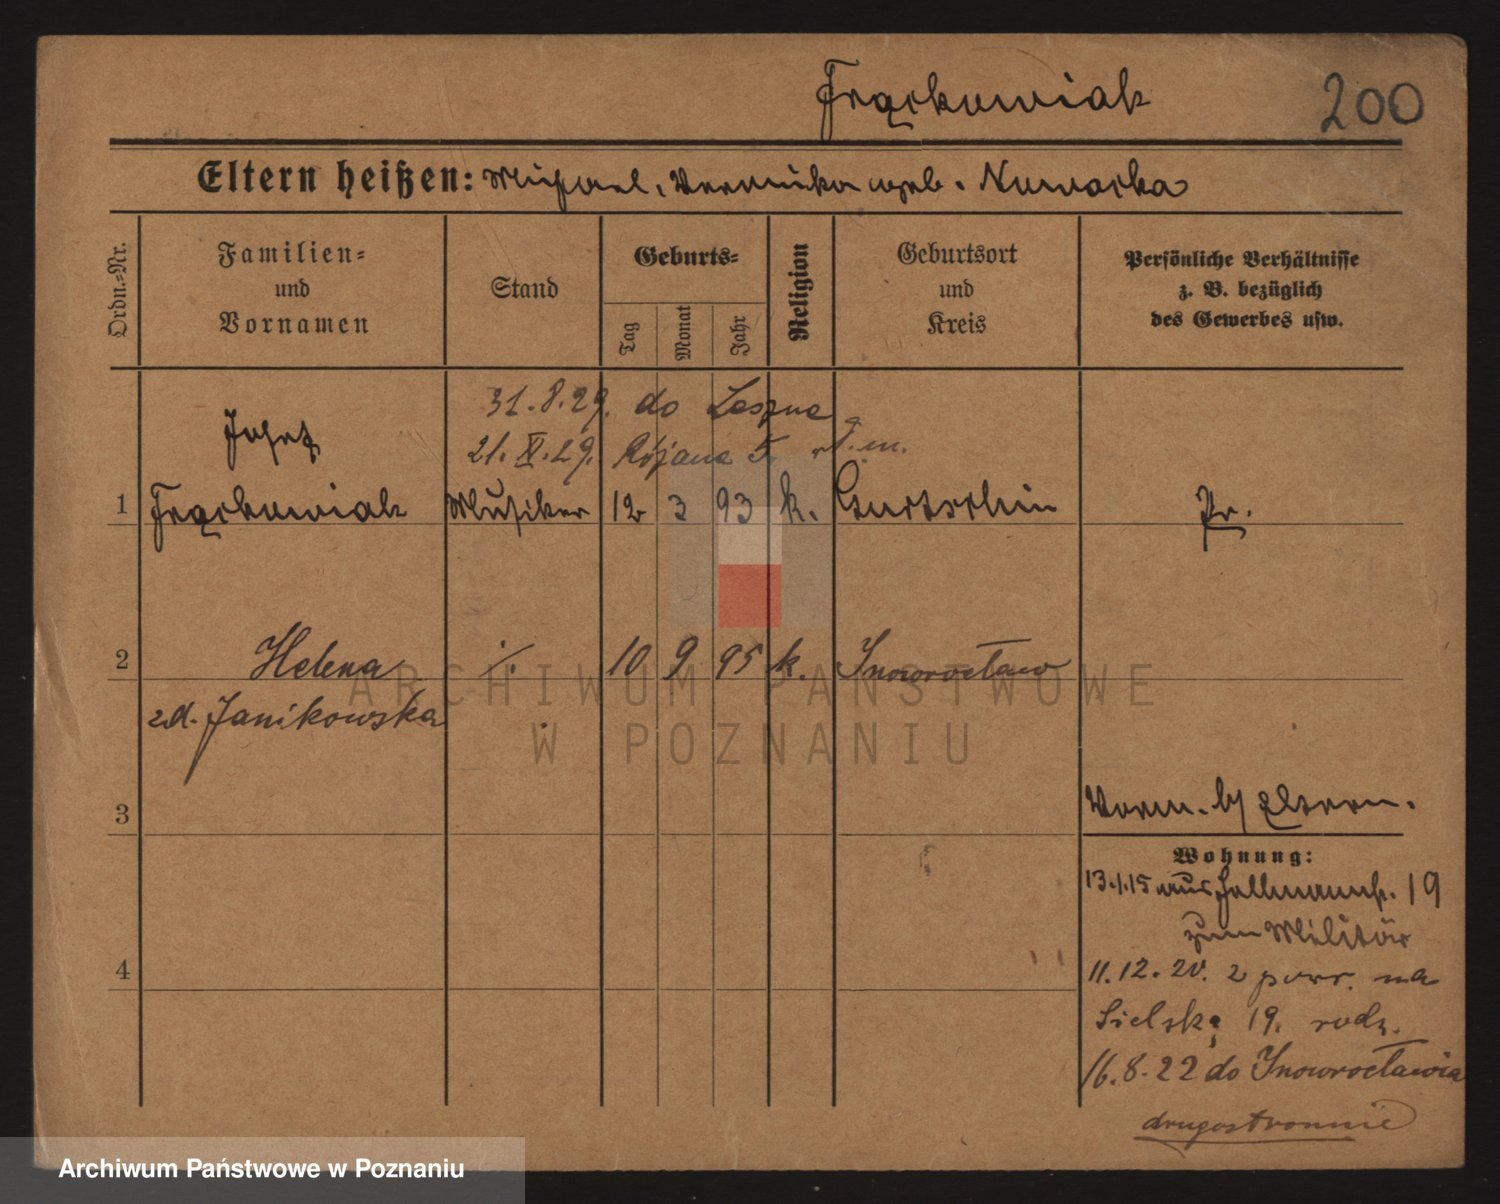 Frąckowiak 200
Eltern heißen: Michael, Veronika geb. Nowacka
Ordn.-Nr.
Familien-
und
Vornamen
Stand
Geburts-
Tag
Monat
Jahr
Religion
Geburtsort
und
Kreis
Persönliche Verhältnisse
z. B. bezüglich
des Gewerbes usw.
31.8.29. do Leszna
21.XI.29. 5.
Josef
1 Frąckowiak Musiker 12 3 93 k. Gurtschin Pr.
2 Helena ./. 10 9 95 k. Inowrocław
zd. Janikowska
3
Vorm. b/ Eltern.
Wohnung:
13.1.15 aus Hallmannstr. 19
zum Militär
4
11.12.20. z powr. na
Sielską 19. rodz.
16.8.22 do Inowrocławia
drugostronnie
ARCHIWUM PAŃSTWOWE
W POZNANIU
Archiwum Państwowe w Poznaniu